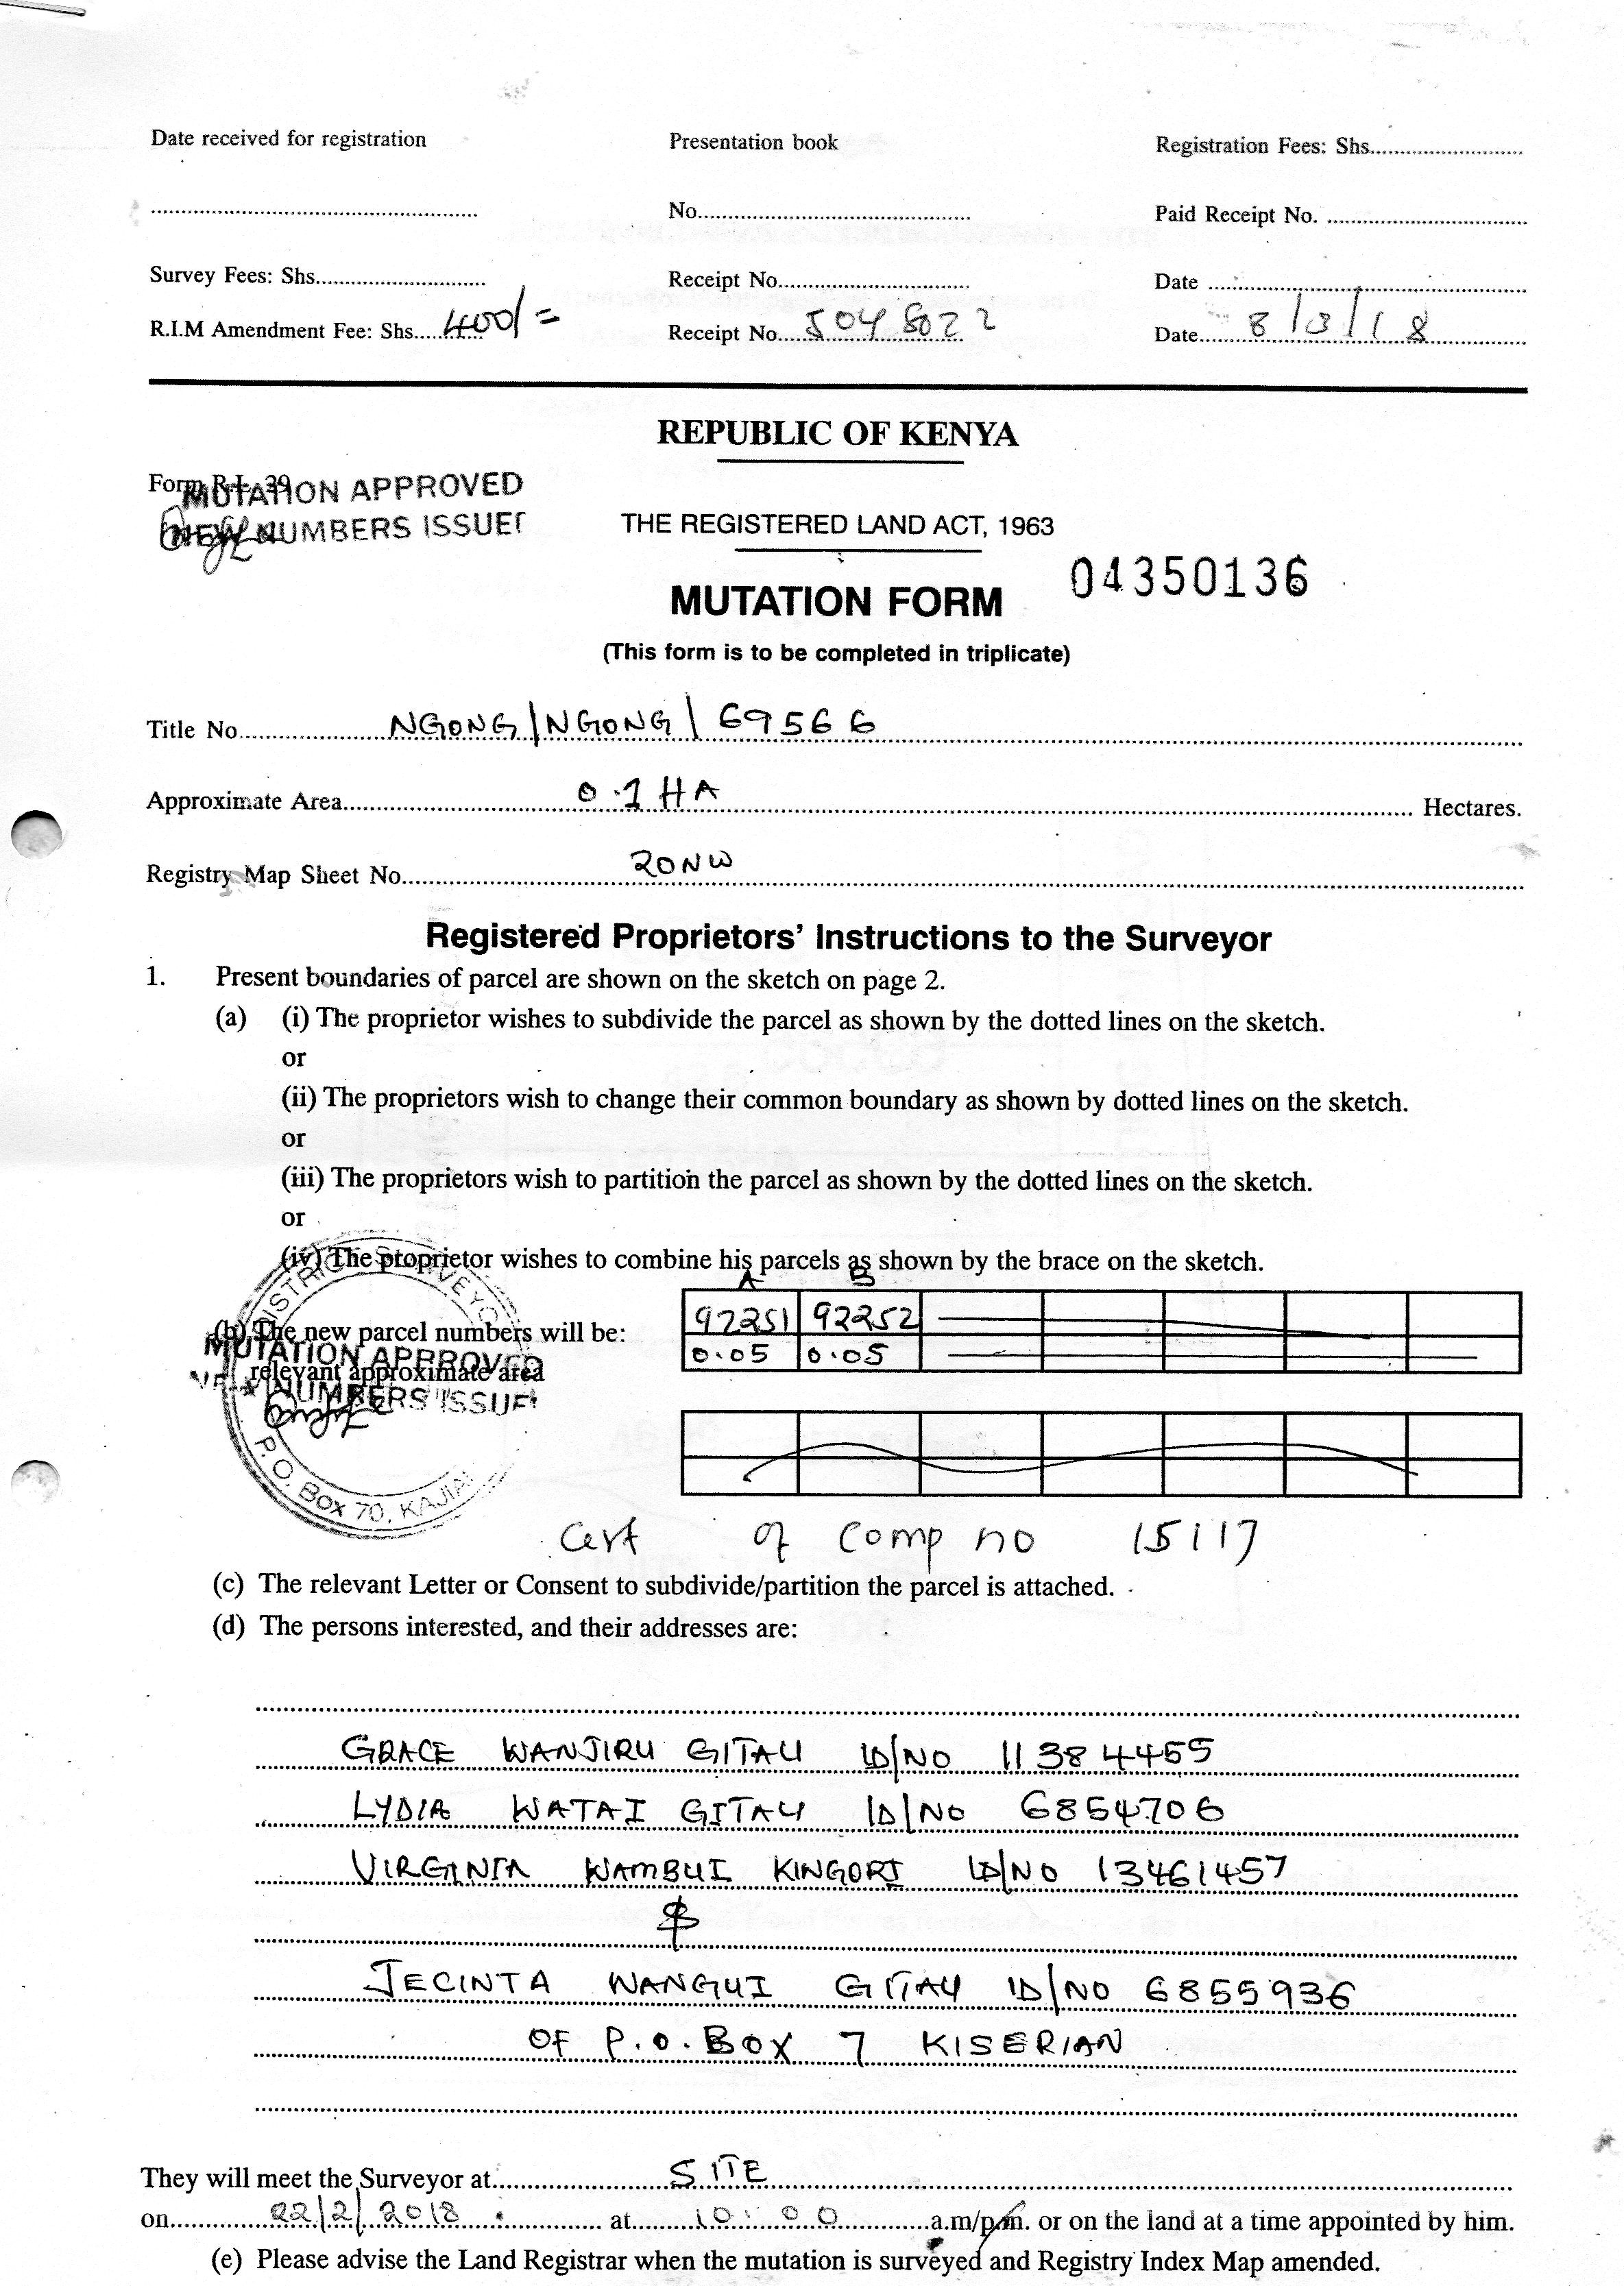 Date received for registration Presentation book Registration Fees: Shs..........................
......................................................... No............................................... Paid Receipt No. ...................................
Survey Fees: Shs............................. Receipt No................................. Date .......................................................
R.I.M Amendment Fee: Shs.....400/= Receipt No...5048022 Date......8/3/18
REPUBLIC OF KENYA
Form R.L. 39
MUTATION APPROVED
NEW NUMBERS ISSUED
THE REGISTERED LAND ACT, 1963
MUTATION FORM 04350136
(This form is to be completed in triplicate)
Title No..................NGONG/NGONG/69566
Approximate Area..................0.1 HA.................. Hectares.
Registry Map Sheet No..................20NW
Registered Proprietors' Instructions to the Surveyor
1. Present boundaries of parcel are shown on the sketch on page 2.
(a) (i) The proprietor wishes to subdivide the parcel as shown by the dotted lines on the sketch.
or
(ii) The proprietors wish to change their common boundary as shown by dotted lines on the sketch.
or
(iii) The proprietors wish to partition the parcel as shown by the dotted lines on the sketch.
or
(iv) The proprietor wishes to combine his parcels as shown by the brace on the sketch.
A B
(b) The new parcel numbers will be: 92251 92252
relevant approximate area 0.05 0.05
DISTRICT SURVEYOR
MUTATION APPROVED
NEW NUMBERS ISSUED
P.O. Box 70, KAJIA
Cert of Comp no 15117
(c) The relevant Letter or Consent to subdivide/partition the parcel is attached.
(d) The persons interested, and their addresses are:
GRACE WANJIRU GITAU ID/NO 11384455
LYDIA WATAI GITAU ID/NO 6854706
VIRGINIA WAMBUI KINGORI ID/NO 13461457
&
JECINTA WANGUI GITAU ID/NO 6855936
OF P.O. BOX 7 KISERIAN
They will meet the Surveyor at..................SITE
on............22/2/2018............ at............10:00............a.m/p.m. or on the land at a time appointed by him.
(e) Please advise the Land Registrar when the mutation is surveyed and Registry Index Map amended.